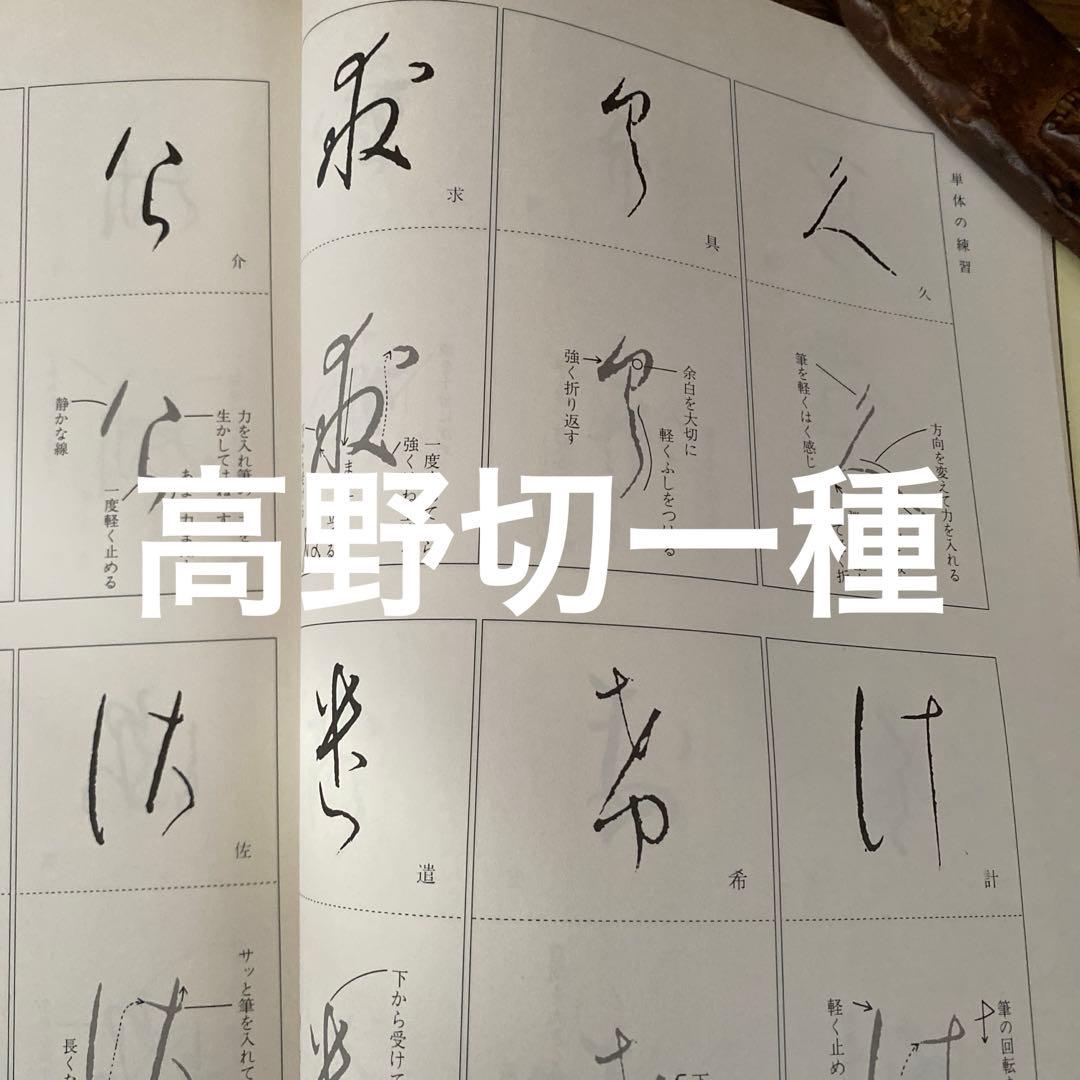 高野切一種
単体の練習
久
筆を軽くはく感じ
方向を変えて力を入れる
具
強く折り返す
余白を大切に
軽くふしをつける
求
一度
強く
介
静かな線
力を入れ筆の
生かしてはねだす
一度軽く止める
計
筆の回転
軽く止め
希
下
遣
下から受けて
佐
サッと筆を入れて
長く